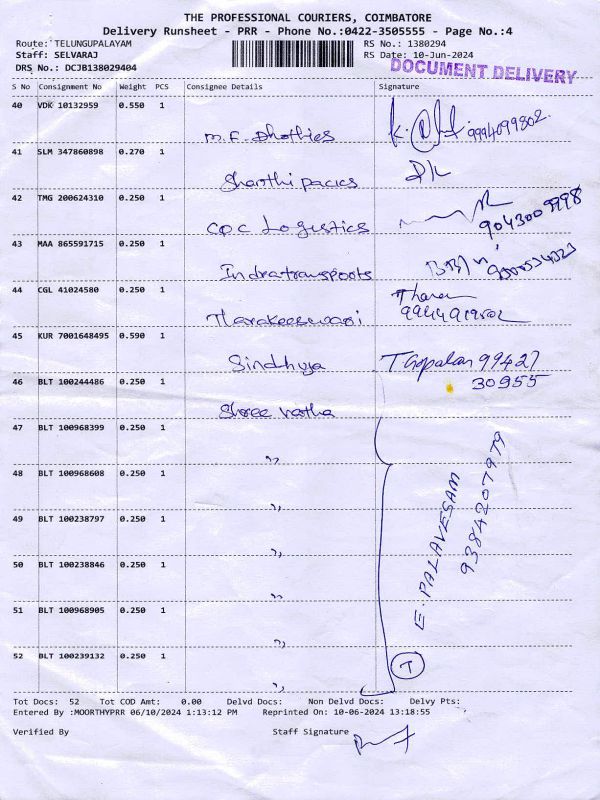 THE PROFESSIONAL COURIERS, COIMBATORE
Delivery Runsheet - PRR - Phone No.:0422-3505555 - Page No.:4
Route: TELUNGUPALAYAM RS No.: 1380294
Staff: SELVARAJ RS Date: 10-Jun-2024
DRS No.: DCJB138029404 DOCUMENT DELIVERY
S No Consignment No Weight PCS Consignee Details Signature
40 VDK 10132959 0.550 1
M.F. Dhothies 9994099802
41 SLM 347860898 0.270 1
Shanthi pacics
42 TMG 200624310 0.250 1
CPC Logistics 9043009998
43 MAA 865591715 0.250 1
Indra transports
44 CGL 41024580 0.250 1
Tharakeeswari
45 KUR 7001648495 0.590 1
Sindhuja T Gopalan 99427
30955
46 BLT 100244486 0.250 1
Shree natha
47 BLT 100968399 0.250 1
"
48 BLT 100968608 0.250 1
"
49 BLT 100238797 0.250 1
"
50 BLT 100238846 0.250 1
"
51 BLT 100968905 0.250 1
"
52 BLT 100239132 0.250 1
"
E. PALAVESAM
9384207979
T
Tot Docs: 52 Tot COD Amt: 0.00 Delvd Docs: Non Delvd Docs: Delvy Pts:
Entered By :MOORTHYPRR 06/10/2024 1:13:12 PM Reprinted On: 10-06-2024 13:18:55
Verified By Staff Signature